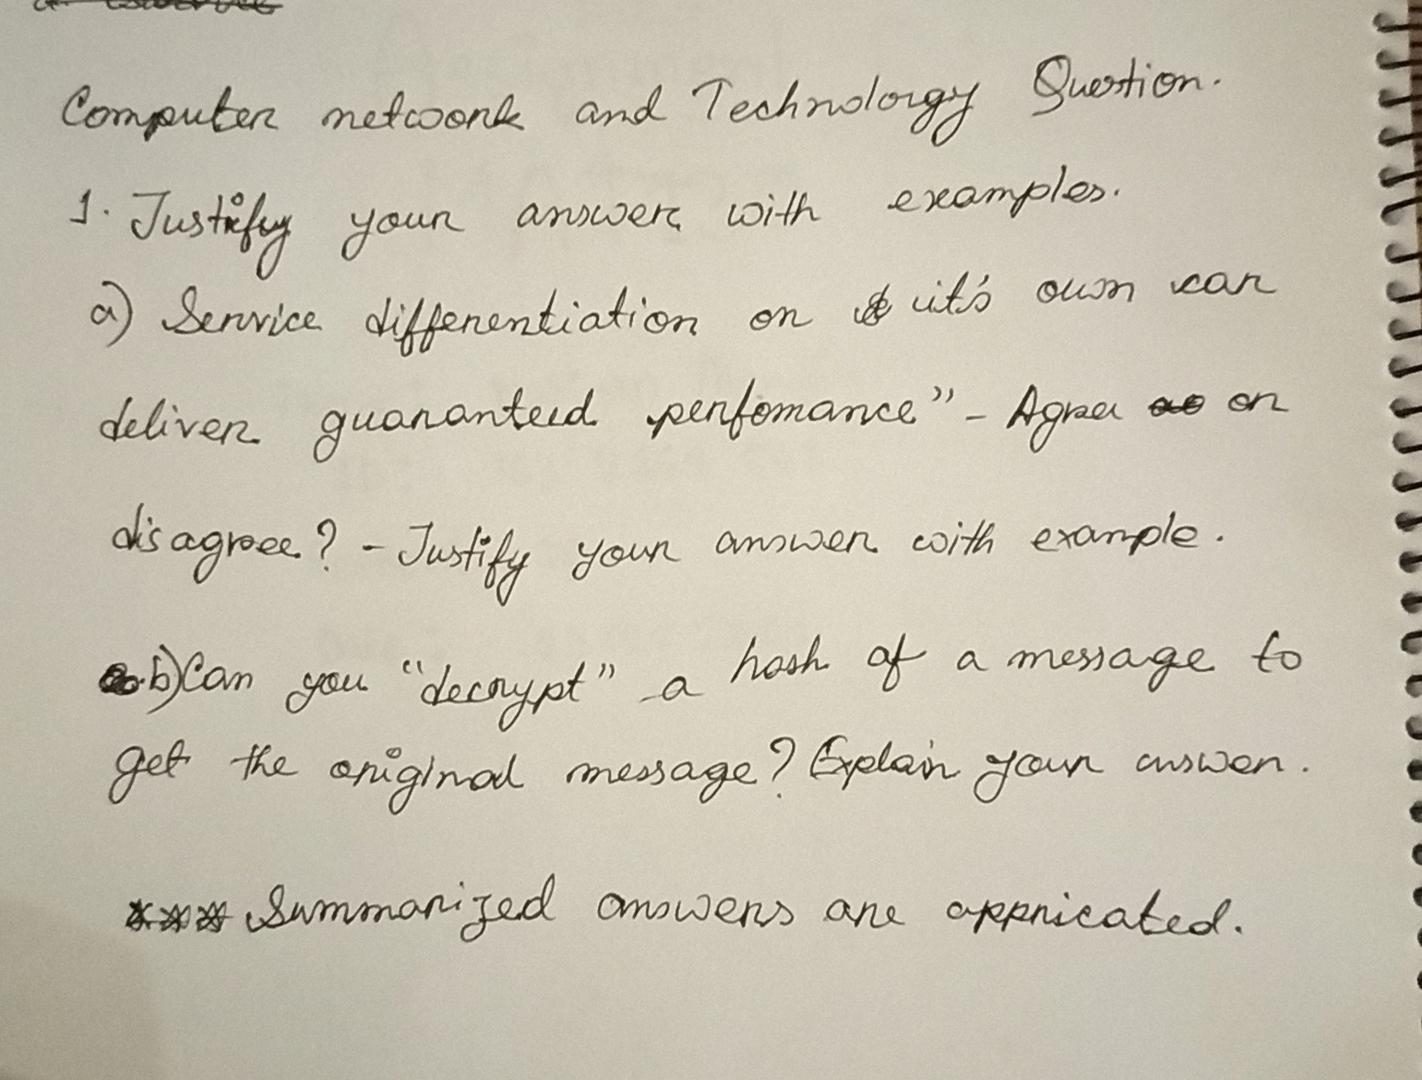 Computer network and Technology Question.
1. Justify your answer with examples.
a) Service differentiation on it's own can
deliver guaranteed perfomance" - Agree or
disagree? - Justify your answer with example.
b) Can you "decrypt" a hash of a message to
get the original message? Explain your answer.
*** Summarized answers are appricated.